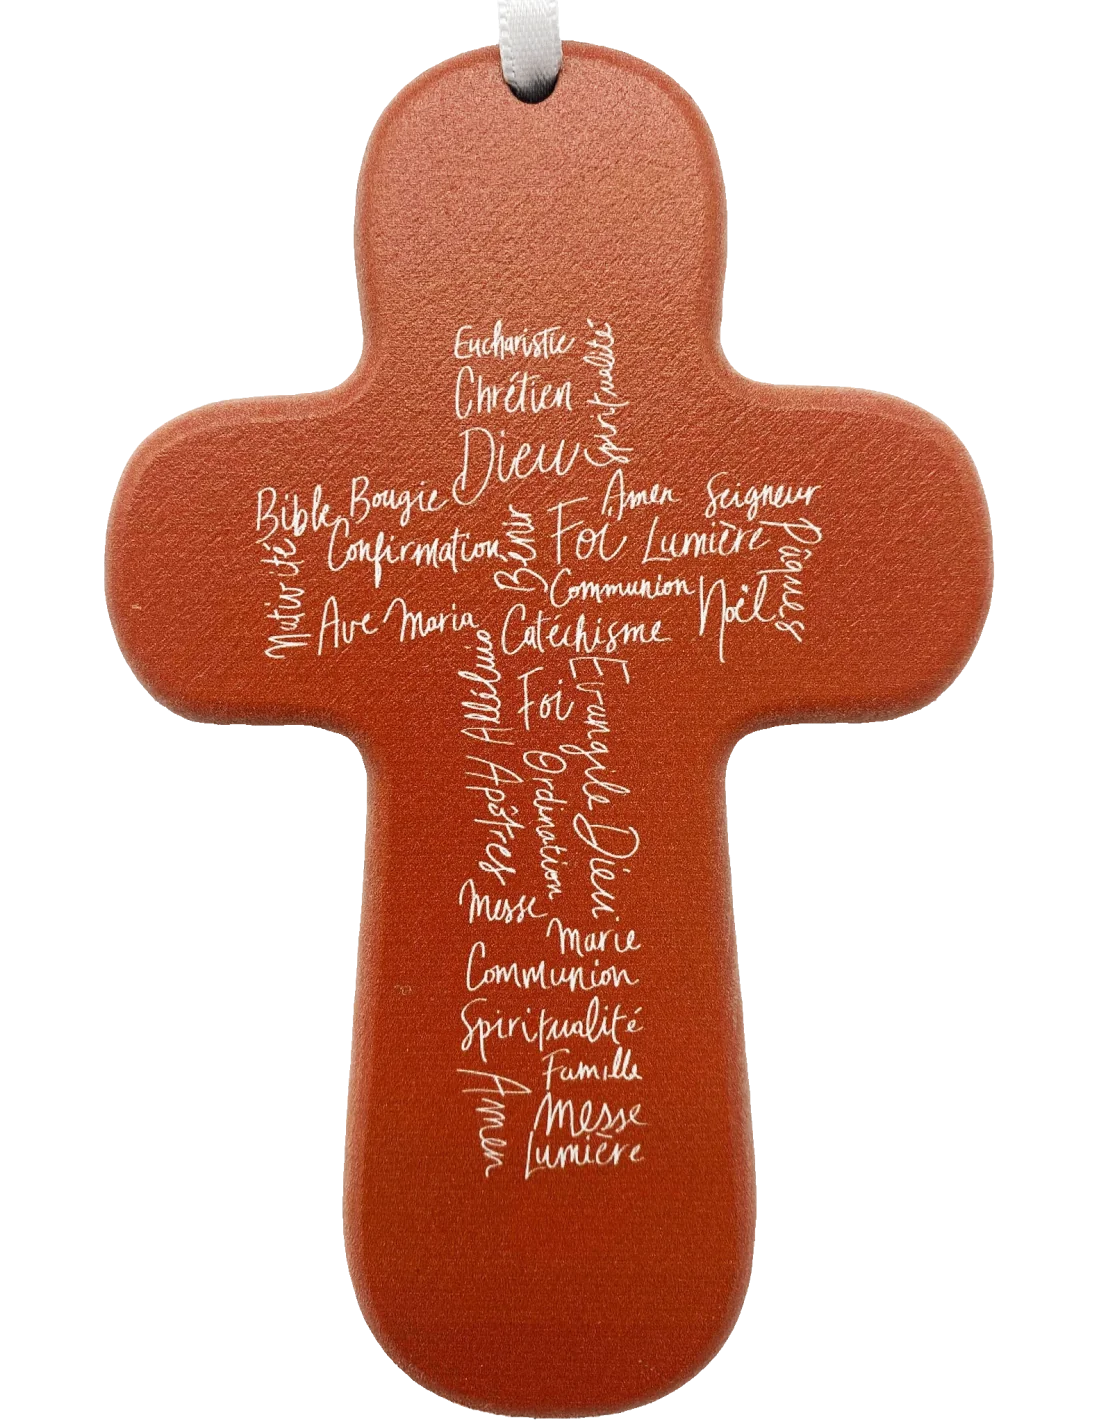 Eucharistie
Spiritualité
Chrétien
Dieu
Bible Bougie
Amen Seigneur
Confirmation
Bénir
Foi Lumière
Pâques
Nativité
Communion
Noël
Ave Maria
Catéchisme
Alléluia
Foi
Evangile
Apôtres
Ordination
Dieu
Messe
Marie
Communion
Spiritualité
Famille
Amen
Messe
Lumière